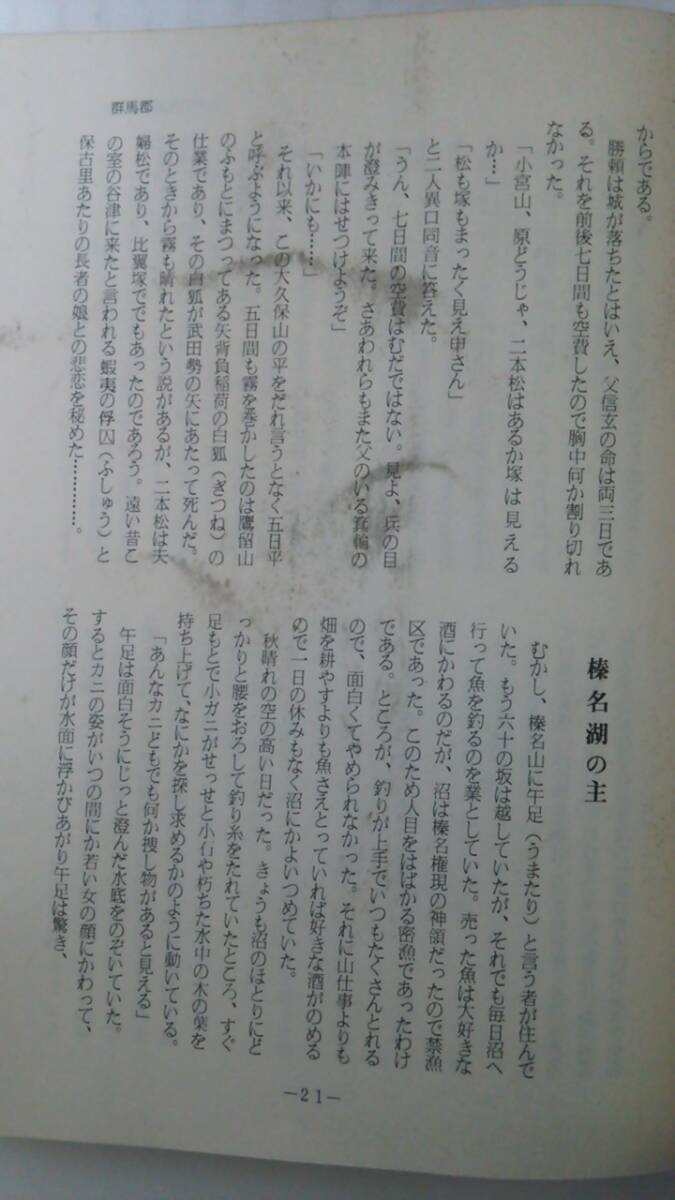 群馬郡
からである。
勝頼は城が落ちたとはいえ、父信玄の命は両三日であ
る。それを前後七日間も空費したので胸中何か割り切れ
なかった。
「小宮山、原どうじゃ、二本松はあるか塚は見える
か…」
「松も塚もまったく見え申さん」
と二人異口同音に答えた。
「うん、七日間の空費はむだではない。見よ、兵の目
が澄みきって来た。さあわれらもまた父のいる箕輪の
本陣にはせつけようぞ」
「いかにも……」
それ以来、この大久保山の平をだれ言うとなく五日平
と呼ぶようになった。五日間も霧を巻かしたのは鷹留山
のふもとにまつってある矢背負稲荷の白狐（ぎつね）の
仕業であり、その白狐が武田勢の矢にあたって死んだ。
そのときから霧も晴れたという説があるが、二本松は夫
婦松であり、比翼塚ででもあったのであろう。遠い昔こ
の室の谷津に来たと言われる蝦夷の俘囚（ふしゅう）と
保古里あたりの長者の娘との悲恋を秘めた…………。
榛名湖の主
むかし、榛名山に午足（うまたり）と言う者が住んで
いた。もう六十の坂は越していたが、それでも毎日沼へ
行って魚を釣るのを業としていた。売った魚は大好きな
酒にかわるのだが、沼は榛名権現の神領だったので禁漁
区であった。このため人目をはばかる密漁であったわけ
である。ところが、釣りが上手でいつもたくさんとれる
ので、面白くてやめられなかった。それに山仕事よりも
畑を耕やすよりも魚さえとっていれば好きな酒がのめる
ので一日の休みもなく沼にかよいつめていた。
秋晴れの空の高い日だった。きょうも沼のほとりにど
っかりと腰をおろして釣り糸をたれていたところ、すぐ
足もとで小ガニがせっせと小石や朽ちた水中の木の葉を
持ち上げて、なにかを探し求めるかのように動いている。
「あんなカニどもでも何か捜し物があると見える」
午足は面白そうにじっと澄んだ水底をのぞいていた。
するとカニの姿がいつの間にか若い女の顔にかわって、
その顔だけが水面に浮かびあがり午足は驚き、
—21—